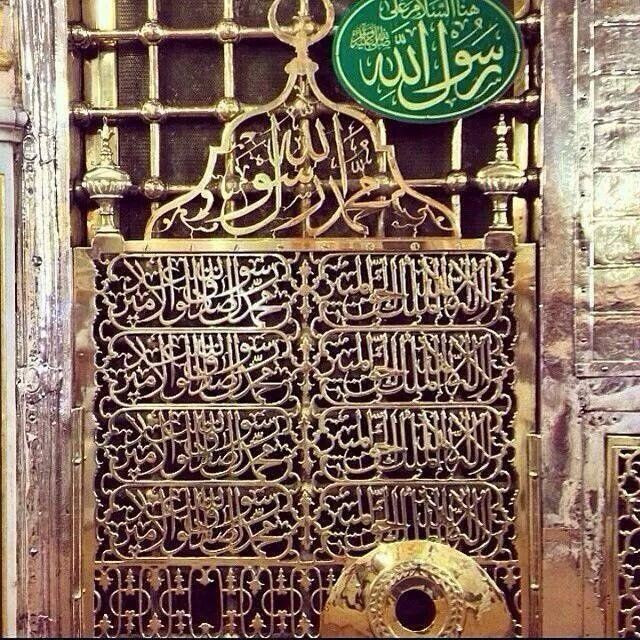 هنا السلام على
رسول الله
صلى الله عليه وسلم
محمد رسول الله
لا اله الا الله الملك الحق المبين محمد رسول الله صادق الوعد الامين
لا اله الا الله الملك الحق المبين محمد رسول الله صادق الوعد الامين
لا اله الا الله الملك الحق المبين محمد رسول الله صادق الوعد الامين
لا اله الا الله الملك الحق المبين محمد رسول الله صادق الوعد الامين